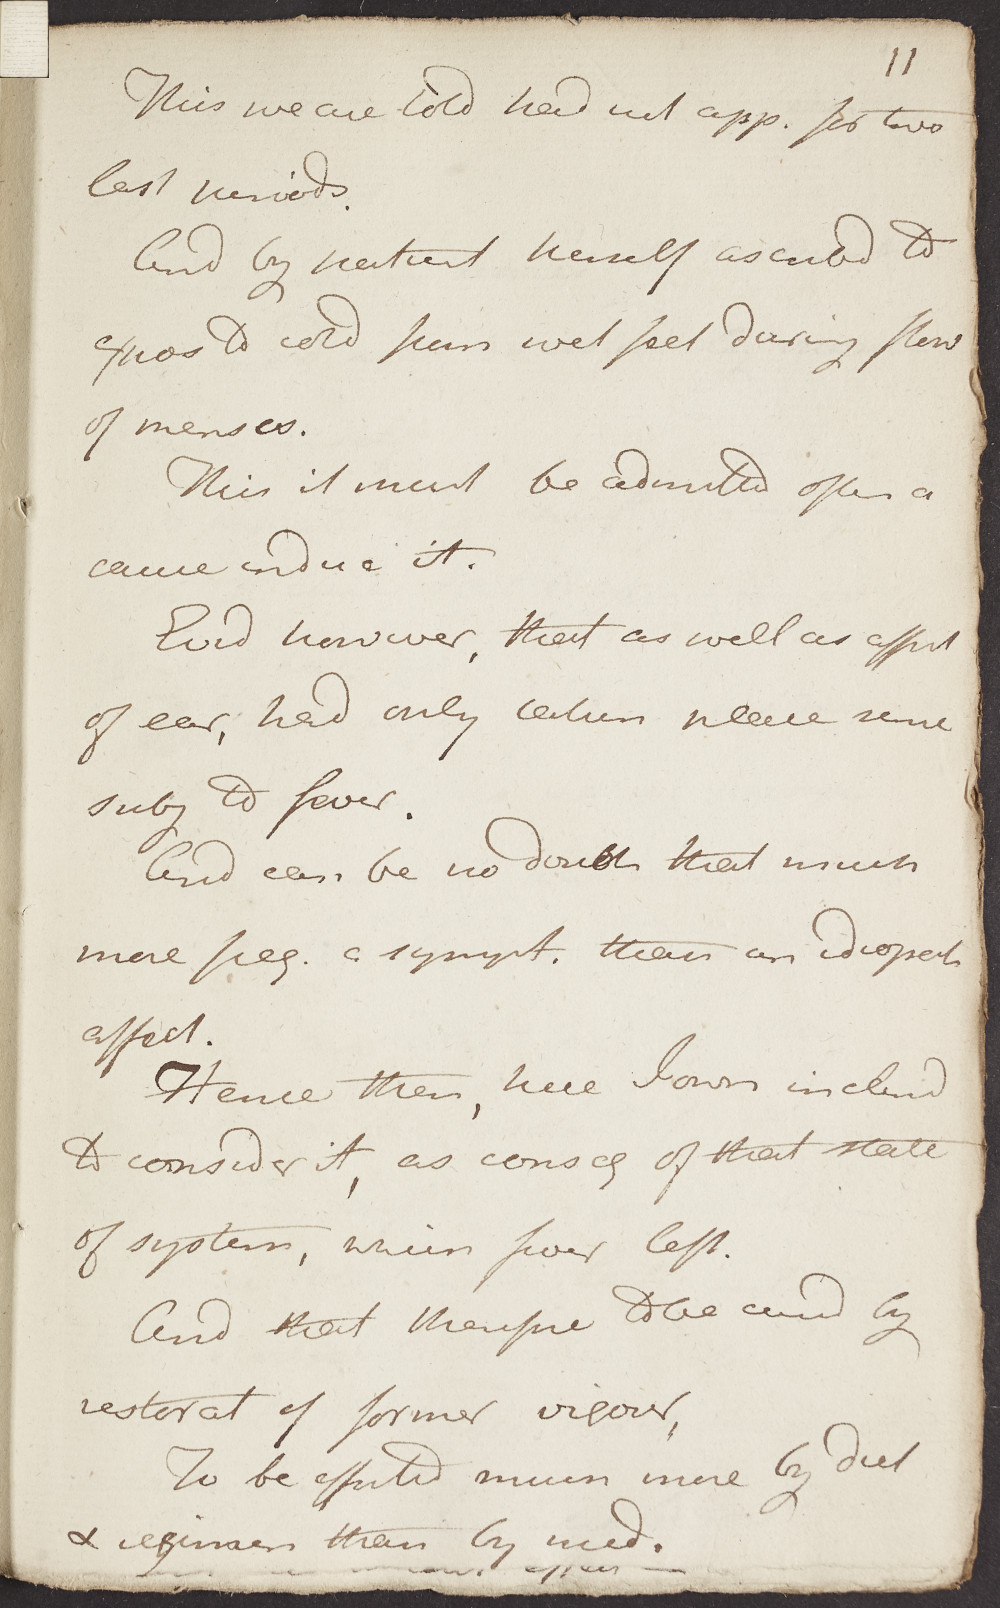 11
This we are told had not app. for two
last periods.
And by patient herself ascribd to
expos to cold from wet feet during flow
of menses.
This it must be admitted often a
cause induc it.
Evid however, that as well as affect
of ear, had only taken place some
subq to fever.
And can be no doubt that much
more freq. a sympt. than an idiopath
affect.
Hence then, here I own inclind
to consider it, as conseq of that state
of system, which fever left.
And that therefore to be curd by
restorat of former vigour,
To be effected much more by diet
& regimen than by med.